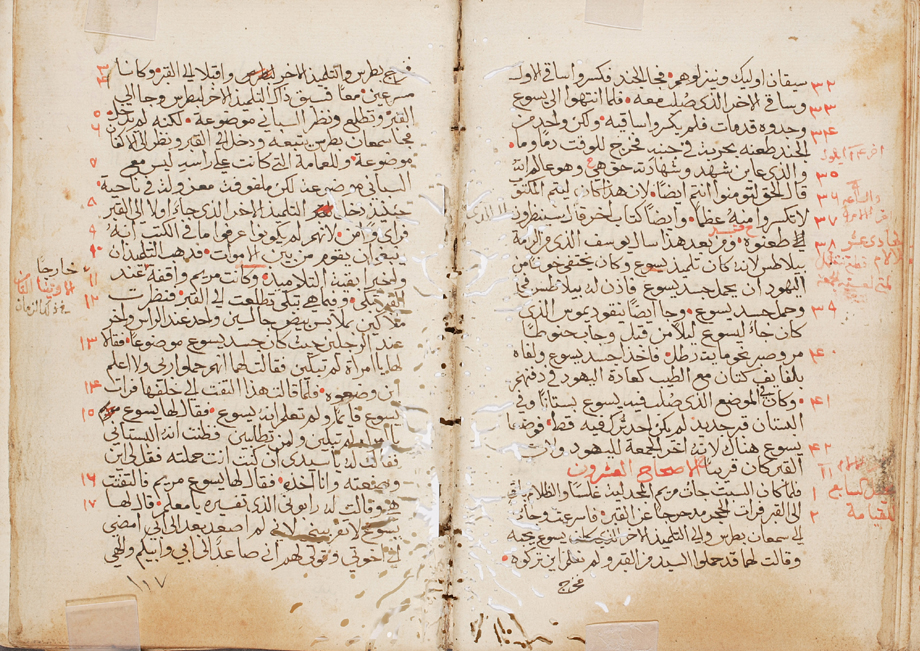 سيقان اوليك ونيزلوهم فجا الجند فكسروا ساقي الاول ٣٢
وساقي الاخر الذي صُلب معه فلما انتهوا الى يسوع ٣٣
وجدوه قد مات فلم يكسروا ساقيه ولكن واحد من ٣٤
الجند طعنه بحربة في جنبه فخرج للوقت دم وما
والذي عاين شهد وشهادته حق هي وهو علم انه ٣٥
قال الحق لتومنوا انتم ايضا لان هذا كان ليتم المكتوب ٣٦
لا تكسروا منه عظما وايضا كتاب اخر قال سينظرون ٣٧
الى طعنوه ومن بعد هذا سال يوسف الذي من الرامة ٣٨
بيلاطس لانه كان تلميد يسوع وكان مختفي خوفا من
اليهود ان يحمل جسد يسوع فاذن له بيلاطس فجا
وحمل جسد يسوع وجا ايضا نيقوديموس الذي ٣٩
كان جاء ليسوع ليلا من قبل وجاب حنوطا
مر وصبر نحو ماية رطل فاخذا جسد يسوع ولفاه ٤٠
بلفايف كتان مع الطيب كعادة اليهود في دفنهم
وكان في الموضع الذي صلب فيه يسوع بستانا وفي ٤١
البستان قبر جديد لم يكن احد ترك فيه قط وضعا
يسوع هناك لانه اخر الجمعة لليهود ولان ٤٢
القبر كان قريبا الاصحاح العشرون
فلما كان السبت جات مريم المجدلية غلسا والظلام باقي ١
الى القبر فرات الحجر مدحرجا عن القبر فاسرعت وجات ٢
الى سمعان بطرس والى التلميذ الاخر الذي يسوع يحبه
وقالت لهما قد حملوا السيد من القبر ولم نعلم اين تركوه
فخرج
فخرج بطرس والتلميذ الاخر واقبلا الى القبر وكانا ٣
مسرعين معا فسبق ذاك التلميذ الاخر لبطرس وجا الى ٤
القبر وتطلع ونظر السباني موضوعة لكنه لم يدخل ٥
فجا سمعان بطرس يتبعه ودخل الى القبر ونظر الى الاكفان ٦
موضوعة والعمامة التي كانت على راسه ليس مع ٧
السباني موضوعة لكن ملفوفة معزولة في ناحية
حينيذ دخل التلميذ الاخر الذي جاء اولا الى القبر ٨
فراى وامن لانهم لم يكونوا عرفوا ما في الكتب انه ٩
ينبغي ان يقوم من بين الاموات فذهب التلميذان ١٠
واخبرا بقية التلاميد وكانت مريم واقفة عند ١١
القبر تبكي وفيما هي تبكي تطلعت الى القبر فنظرت ١٢
ملاكين بملابس بيض جالسين واحد عند الراس واخر
عند الرجلين حيث كان جسد يسوع موضوعا فقالا ١٣
لها يا امراة لم تبكين فقالت لهما انهم حملوا ربي ولا اعلم
اين وضعوه فلما قالت هذا التفتت الى خلفها فرات ١٤
يسوع قايم ولم تعلم انه يسوع فقال لها يسوع ١٥
يا امراة لم تبكين ولمن تطلبين فظنت انه البستاني
فقالت له يا سيدي ان كنت انت حملته فقل لي اين
وضعته وانا آخذه فقال لها يسوع مريم فالتفتت ١٦
هي وقالت له رابوني الذي تفسيره يا معلم قال لها ١٧
يسوع لا تقربيني لاني لم اصعد بعد الى ابي امضي
الى اخوتي وقولي لهم اني صاعدا الى ابي وابيكم والهي
١١٧